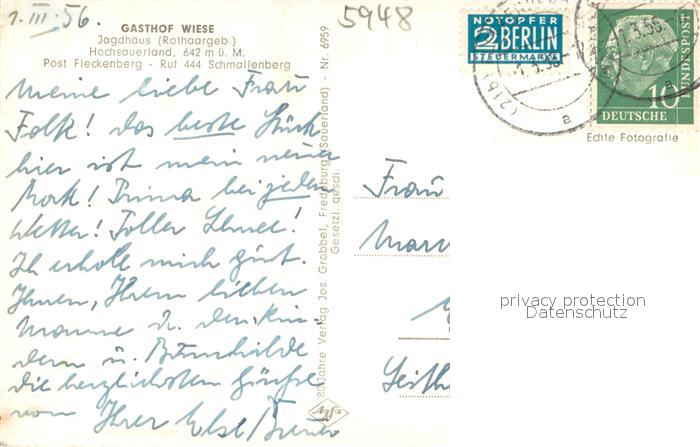 1. III. 56.
5948
GASTHOF WIESE
Jagdhaus (Rothaargeb.)
Hochsauerland, 642 m ü. M.
Post Fleckenberg - Ruf 444 Schmallenberg
NOTOPFER
2 BERLIN
STEUERMARKE
DEUTSCHE
BUNDESPOST
10
Echte Fotografie
Meine liebe Frau
Falk! Das beste Stück
hier ist mein neuer
Rock! Prima bei jedem
Wetter! Toller Schnee!
Ich erhole mich gut.
Ihnen, Ihrem lieben
Manne u. den Kin-
dern u. Brunhilde
die herzlichsten Grüße
von Ihrer Else
80 Jahre Verlag Jos. Grobbel, Fredeburg (Sauerland) - Nr. 6959
Gesetzl. gesch.
Agfa
Frau
privacy protection
Datenschutz